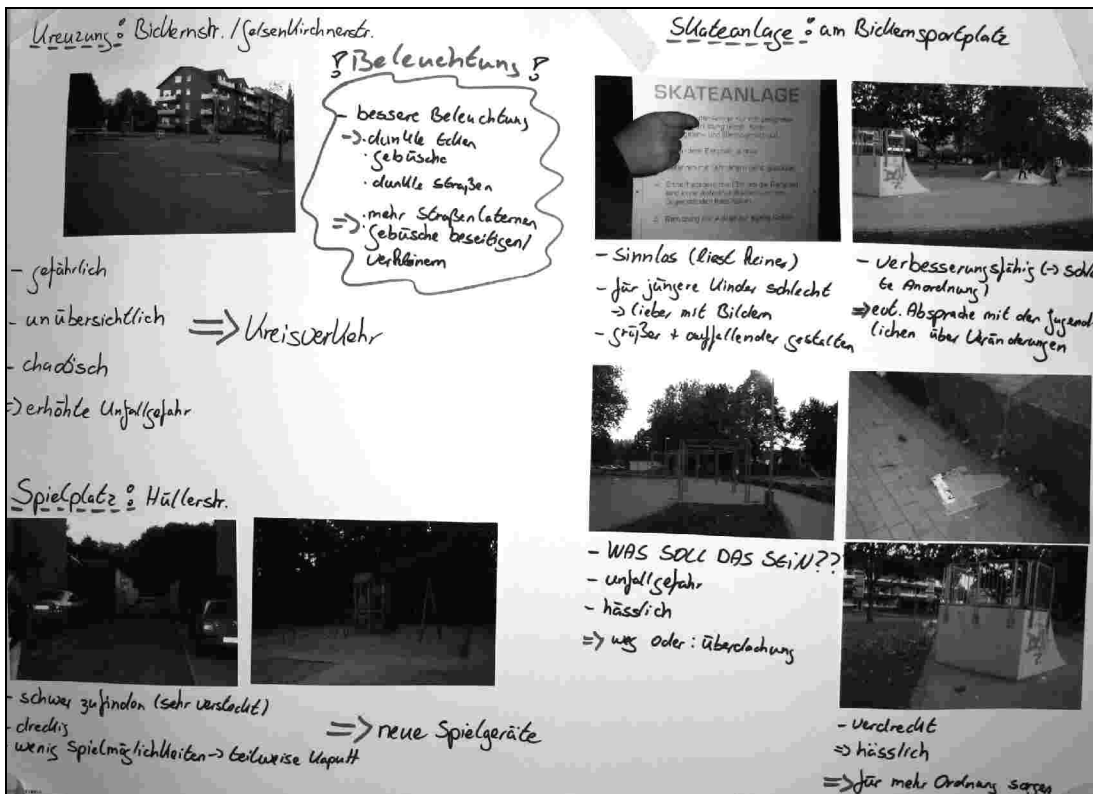 Kreuzung: Bickernstr. / Gelsenkirchnerstr.
- gefährlich
- unübersichtlich
- chaotisch
=> erhöhte Unfallgefahr
=> Kreisverkehr
! Beleuchtung !
- bessere Beleuchtung
-> · dunkle Ecken
· gebüsche
· dunkle Straßen
=> · mehr Straßenlaternen
· gebüsche beseitigen/
verkleinern
Spielplatz: Hüllerstr.
- schwer zu finden (sehr versteckt)
- dreckig
- wenig Spielmöglichkeiten -> teilweise kaputt
=> neue Spielgeräte
Skateanlage: am Bickernsportplatz
SKATEANLAGE
- sinnlos (liest keiner)
- für jüngere Kinder schlecht
-> lieber mit Bildern
- größer + auffallender gestalten
- verbesserungsfähig (-> schle
te Anordnung)
=> evt. Absprache mit den Jugend
lichen über Veränderungen
- WAS SOLL DAS SEIN??
- unfallgefahr
- hässlich
=> weg oder: Überdachung
- verdreckt
=> hässlich
=> für mehr Ordnung sorgen